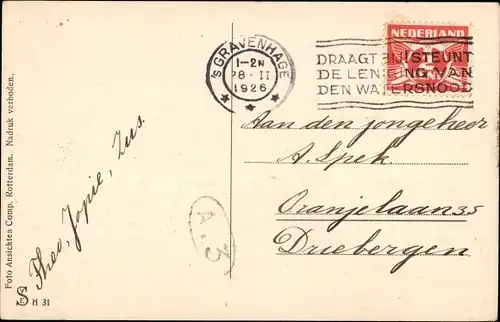 'S GRAVENHAGE
1-2N
28·II
1926
NEDERLAND
DRAAGT BIJ! STEUNT
DE LENIGING VAN
DEN WATERSNOOD
Aan den jongeheer
A. Spek.
Oranjelaan 35
Driebergen
Theo, Jopie, Zus.
A.3
Foto Ansichten Comp. Rotterdam. Nadruk verboden.
S H 31